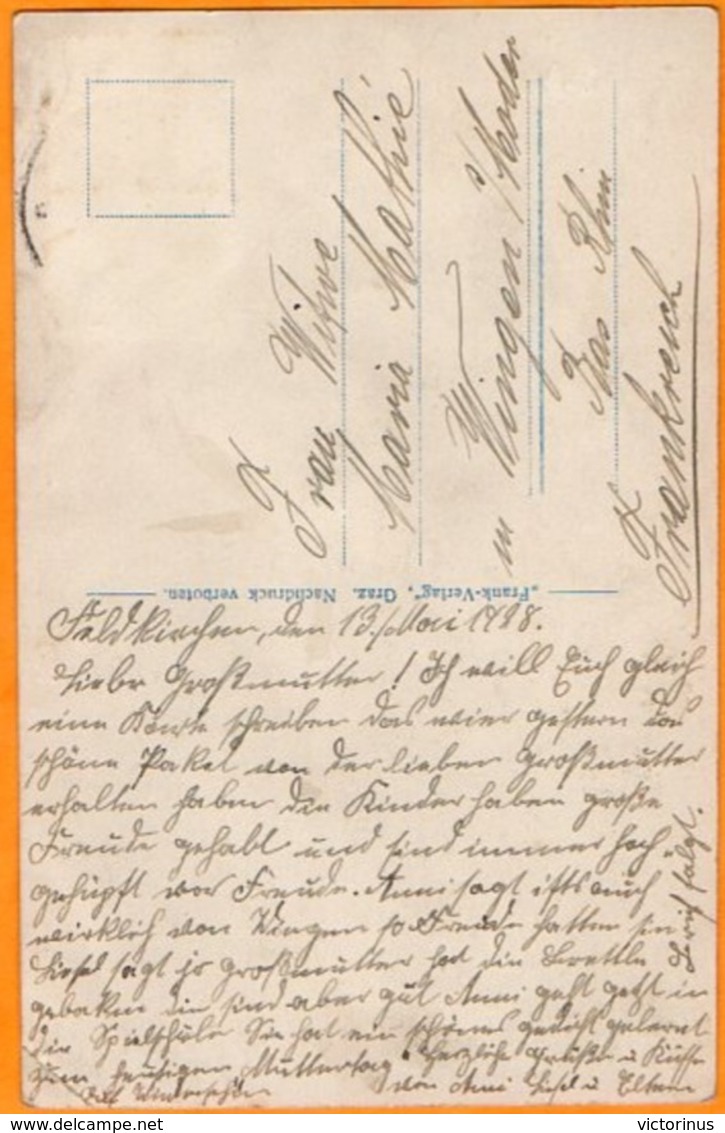 Frau Witwe
Maria Mathié
in Wingen s/Moder
Bas Rhin
Frankreich
„Frank-Verlag“, Graz. Nachdruck verboten.
Feldkirchen, den 13./Mai 1928.
Liebe Großmutter! Ich will Euch gleich
eine Karte schreiben das wier gestern das
schöne Paket von der lieben Großmutter
erhalten haben die Kinder haben große
Freude gehabt und sind immer hoch
gehüpft vor Freude. Anni sagt ists auch
wirklich von Wingen so Freude hatten sie
Liesel sagt ja Großmutter hat die Brettle
gebaken die sind aber gut Anni geht jetzt in
die Spielschule Sie hat ein schönes gedicht gelernt
zum heutigen Muttertag herzliche Grüße u Küsse
von Anni Liesel u Eltern
Brief folgt.
victorinus